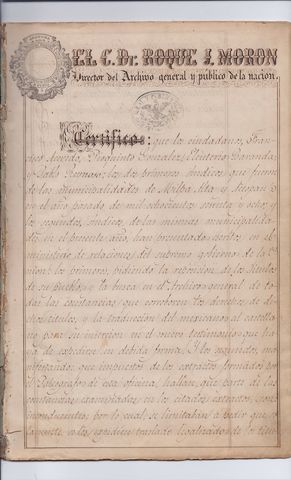 EL C. Dr. ROQUE J. MORON
Director del Archivo general y público de la nacion.
Certifico: que los ciudadanos, Fran-
cisco Acevedo, Gonzalez, Eleuterio
y Reinoso; los dos primeros síndicos que fueron
de las municipalidades de Milpa Alta y
en el año pasado de mil ochocientos sesenta y ocho, y
los segundos, síndicos de las mismas municipalida-
des en el presente año, han presentado escritos en el
ministerio de relaciones del supremo gobierno de la
nion: los primeros, pidiendo la de los títulos
de su Pueblo, y la busca en el Archivo general de
todas las constancias que corroboren los derechos de di-
chos titulos, y la traduccion del mexicano al castella-
no para su insercion en el nuevo testimonio que ha-
ya de expedirse en debida forma. Y los segundos, ma-
nifestando: que impuestos de los extractos formados por
el Paleógrafo de esta oficina, hallan que parte de las
constancias en los citados extractos, son
inconducentes; por lo cual, se limitaban á pedir que
se les expidiera traslado legalizado de los titu-